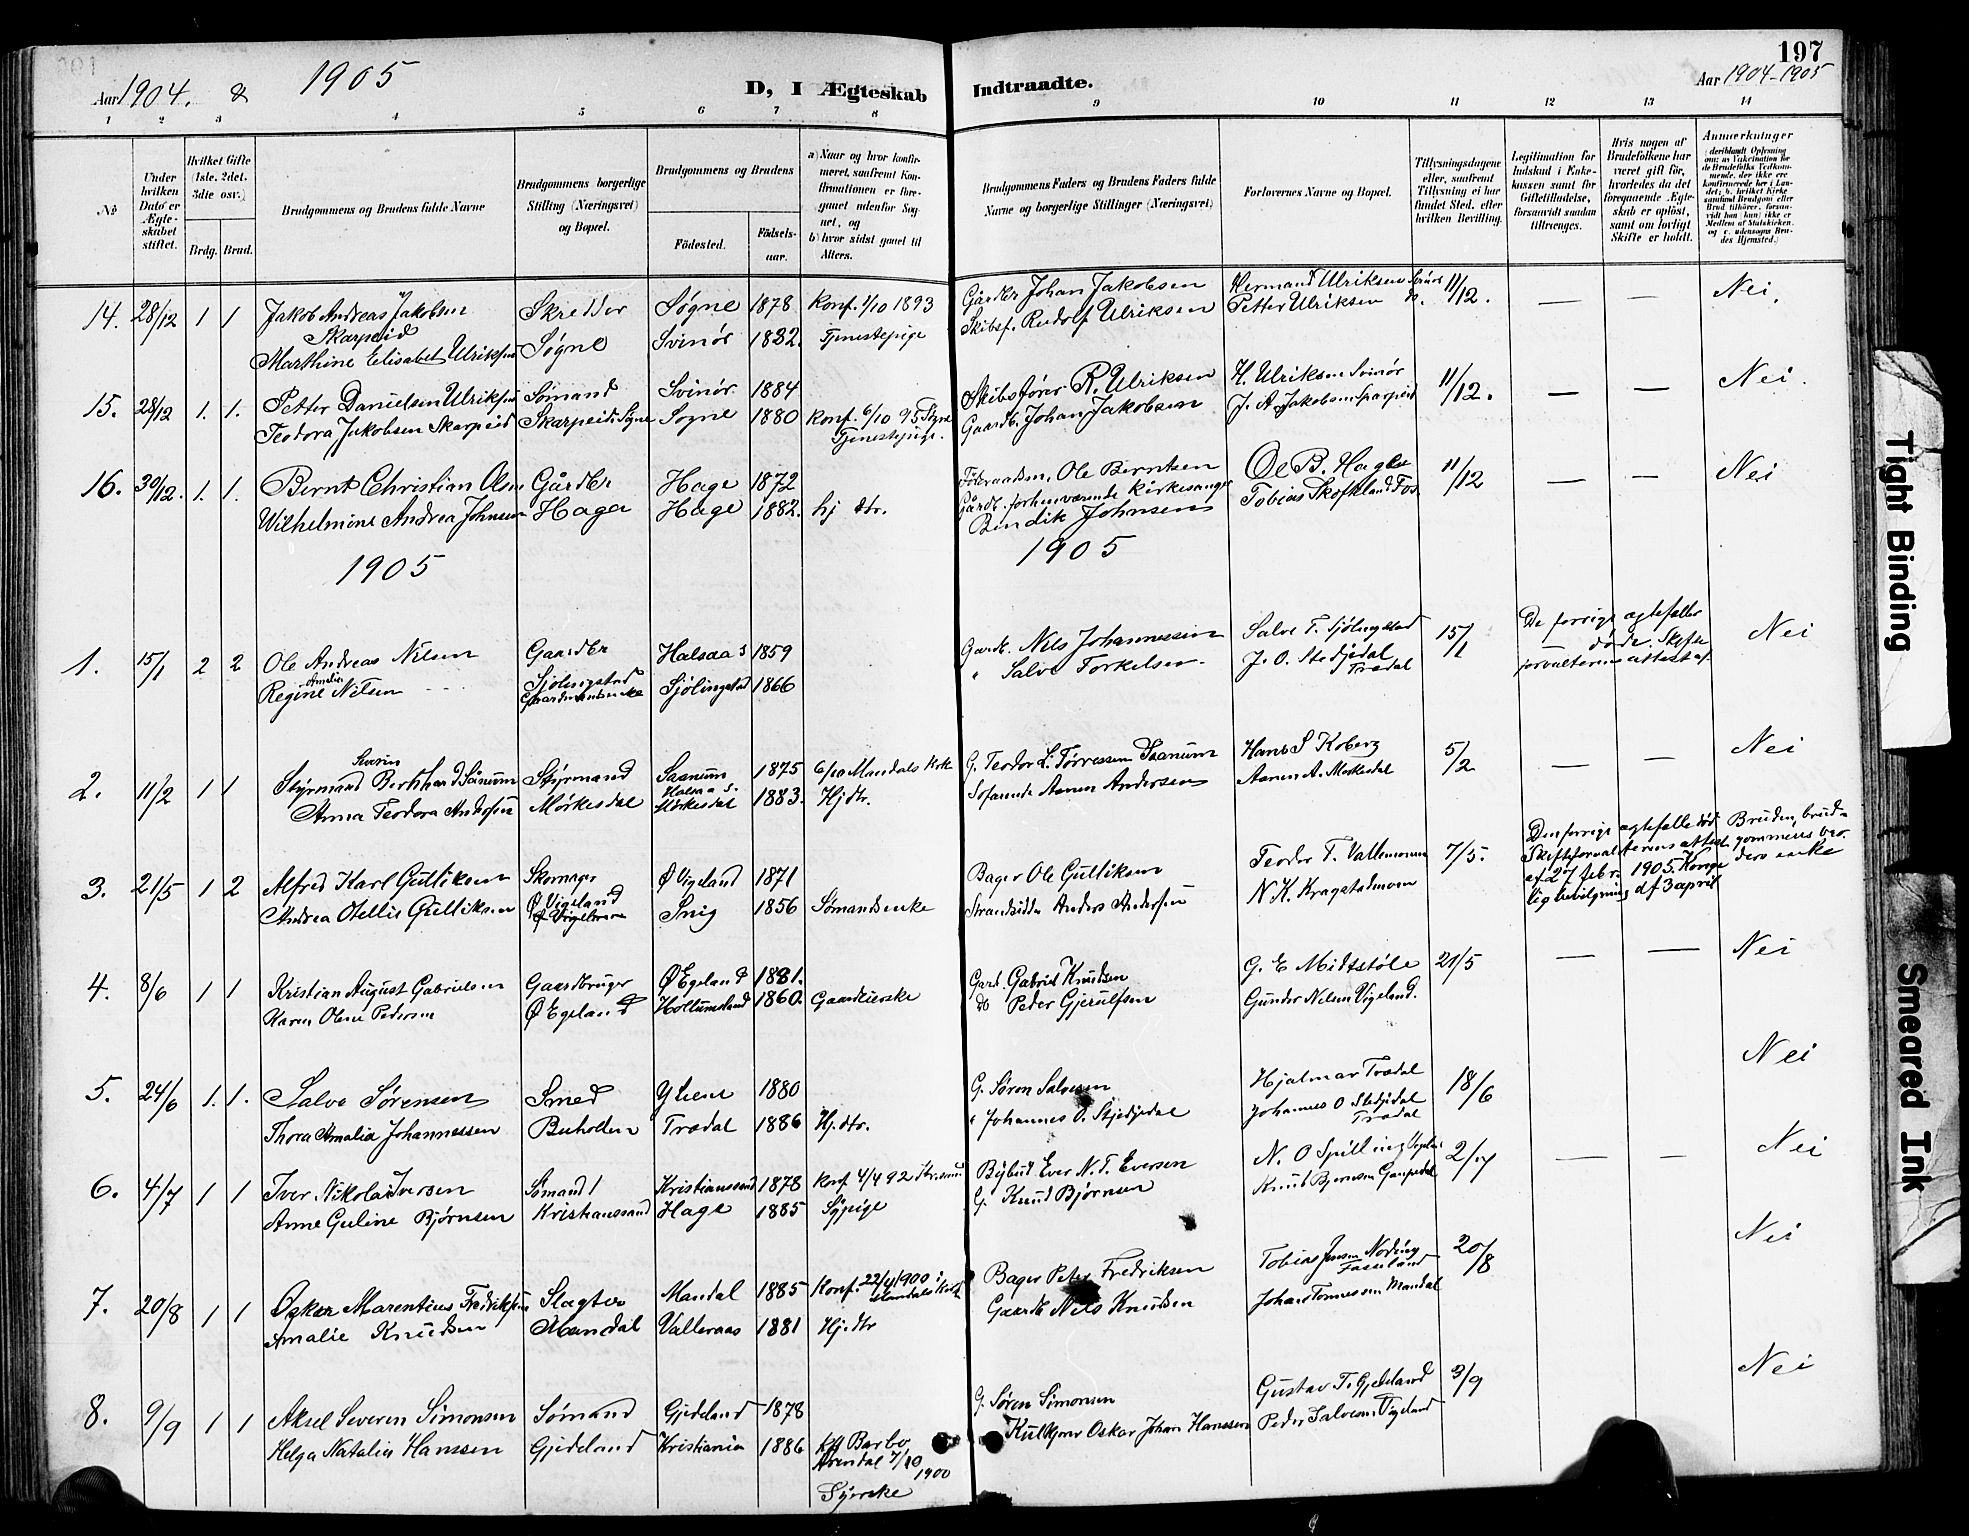 197
Aar 1904. & 1905
D, I Ægteskab Indtraadte.
Aar 1904-1905
1 2 3 4 5 6 7 8 9 10 11 12 13 14
No
Under hvilken Dato er Ægteskabet stiftet.
Hvilket Gifte (1ste. 2det. 3die osv.)
Brdg. Brud.
Brudgommens og Brudens fulde Navne
Brudgommens borgerlige Stilling (Næringsvei) og Bopæl.
Brudgommens og Brudens
Födested.
Födsels-aar.
a) Naar og hvor konfirmeret, saafremt Konfirmationen er foregaaet udenfor Sognet, og
b) hvor sidst gaaet til Alters.
Brudgommens Faders og Brudens Faders fulde Navne og borgerlige Stillinger (Næringsvei)
Forlovernes Navne og Bopæl.
Tillysningsdagene eller, saafremt Tillysning ei har fundet Sted, efter hvilken Bevilling.
Legitimation for Indskud i Enkekassen samt for Giftetilladelse, forsaavidt saadan tiltrænges.
Hvis nogen af Brudefolkene har været gift før, hvorledes da det foregaaende Ægteskab er opløst, samt om lovligt Skifte er holdt.
Anmærkninger
14. 28/12 1 1 Jakob Andreas Jakobsen Skreddor Søgne 1878 Konf. 1/10 1893 Gårdbr Johan Jakobsen Hermand Ulriksen 11/12. — — Nei.
Skarpeid
Marthine Elisabet Ulriksen Søgne Svinør 1882. Tjenestepige Skibsf. Rudolf Ulriksen Petter Ulriksen
15. 28/12 1. 1. Petter Danielsen Ulriksen Sømand Svinør. 1884 Skibsfører R. Ulriksen H. Ulriksen Svinør 11/12. — — Nei.
Teodora Jakobsen Skarpeid Skarpeid Søgne Sogne 1880 Konf. 6/10 95 Tjenestepige. Gaardb. Johan Jakobsen J. A. Jakobsen
16. 30/12. 1. 1. Bernt Christian Olsen Gårdbr Hage 1872 Ole Berntsen Ole B. Hage 11/12 — — Nei
Wilhelmine Andrea Johnsen Hage Hage 1882. hj dtr. Gårdb. forhenværende Kirkesanger Tobias
Bendik Johnsen
1905 1905
1. 15/1 2 2 Ole Andreas Nilsen Gaardbr Halsaa S 1859 Gardb. Nils Johannessen Salve T. Sjölingstad 15/1 De forrige ægtefæller døde. Skifteforvalterens attest af. Nei
Amalia
Regine Nilsen Sjölingstad Gaardmandsenke Sjölingstad 1866 " Salve Torkelsen. J. O. Stedjedal Trædal
2. 11/2 1 1 Styrmand Severin Bernhard Sånum Styrmand Saanum 1875 6/10 Mandals Krk G. Teodor L. Tørressen Saanum Hans S Koberg 5/2 — — Nei
Anna Teodora Andersen Mørkesdal Halsaa S. Mörkesdal 1883. Hj dtr. Aanen Andersen Aanen A. Mørkesdal
3. 21/5 1 2 Alfred Karl Gulliksen Skomager Ø Vigeland 1871 Bager Ole Gulliksen Teodor T. Vallemoen 7/5. Den forrige ægtefælle död. Skifteforvalterens attest af 27 febr. 1905. Kongelig bevilgning af 3 april Bruden, brudgommens broders enke
Andrea Otellie Gulliksen Ø Vigeland Snig 1856 Sømandsenke Strandsidder Anders Andersen N. K. Kragstadmoen
4. 8/6 1 1 Kristian August Gabrielsen Gaardbruger Ø Egeland 1881. Gard. Gabriel Knudsen G. E Midtstøle 21/5 — — Nei
Karen Olene Pedersen Ø Egeland Holtumsland 1860. Gaardeierske do Peder Gjerulfsen Gunder Nilsen Vigeland.
5. 24/6 1. 1. Salve Sørensen Smed 1880 G. Søren Salvesen Hjalmar Trædal 18/6 Nei
Thora Amalia Johannessen Buholden Trædal 1886 Hj. dtr. " Johannes O. Stjedjedal Johannes O Stedjedal Trædal
6. 4/7 1 1 Iver Nikolai Iversen Sømand Kristianssand 1878 Konf. 4/4 92 Bybud Ever N. T. Eversen N. O Spilling 2/7 — — Nei
Anne Guline Bjørnsen Kristianssand Hage 1885 Sypige G. Knud Bjørnsen Knud Bjørnsen
7. 20/8 1 1 Oskar Marentius Fredriksen Slagter Mandal 1885 Konf. 22/4 1900 i Mandals Kirke Bager Peter Fredriksen Tobias Jensen Noding 20/8 Nei
Amalie Knudsen Mandal Valleraas 1881 Hj. dtr Gaardb Nils Knudsen Johan Tönnessen Mandal
8. 9/9 1 1 Aksel Severen Simonsen Sømand Gjedeland 1878 G. Søren Simonsen Gustav T. Gjedeland 3/9 Nei
Helga Natalia Hanssen Gjedeland Kristiania 1886 Barbo Arendal 7/10 1900 Kulkjører Oskar Johan Hanssen Peder Salvesen Vigeland
Syerske
Tight Binding
Smeared Ink